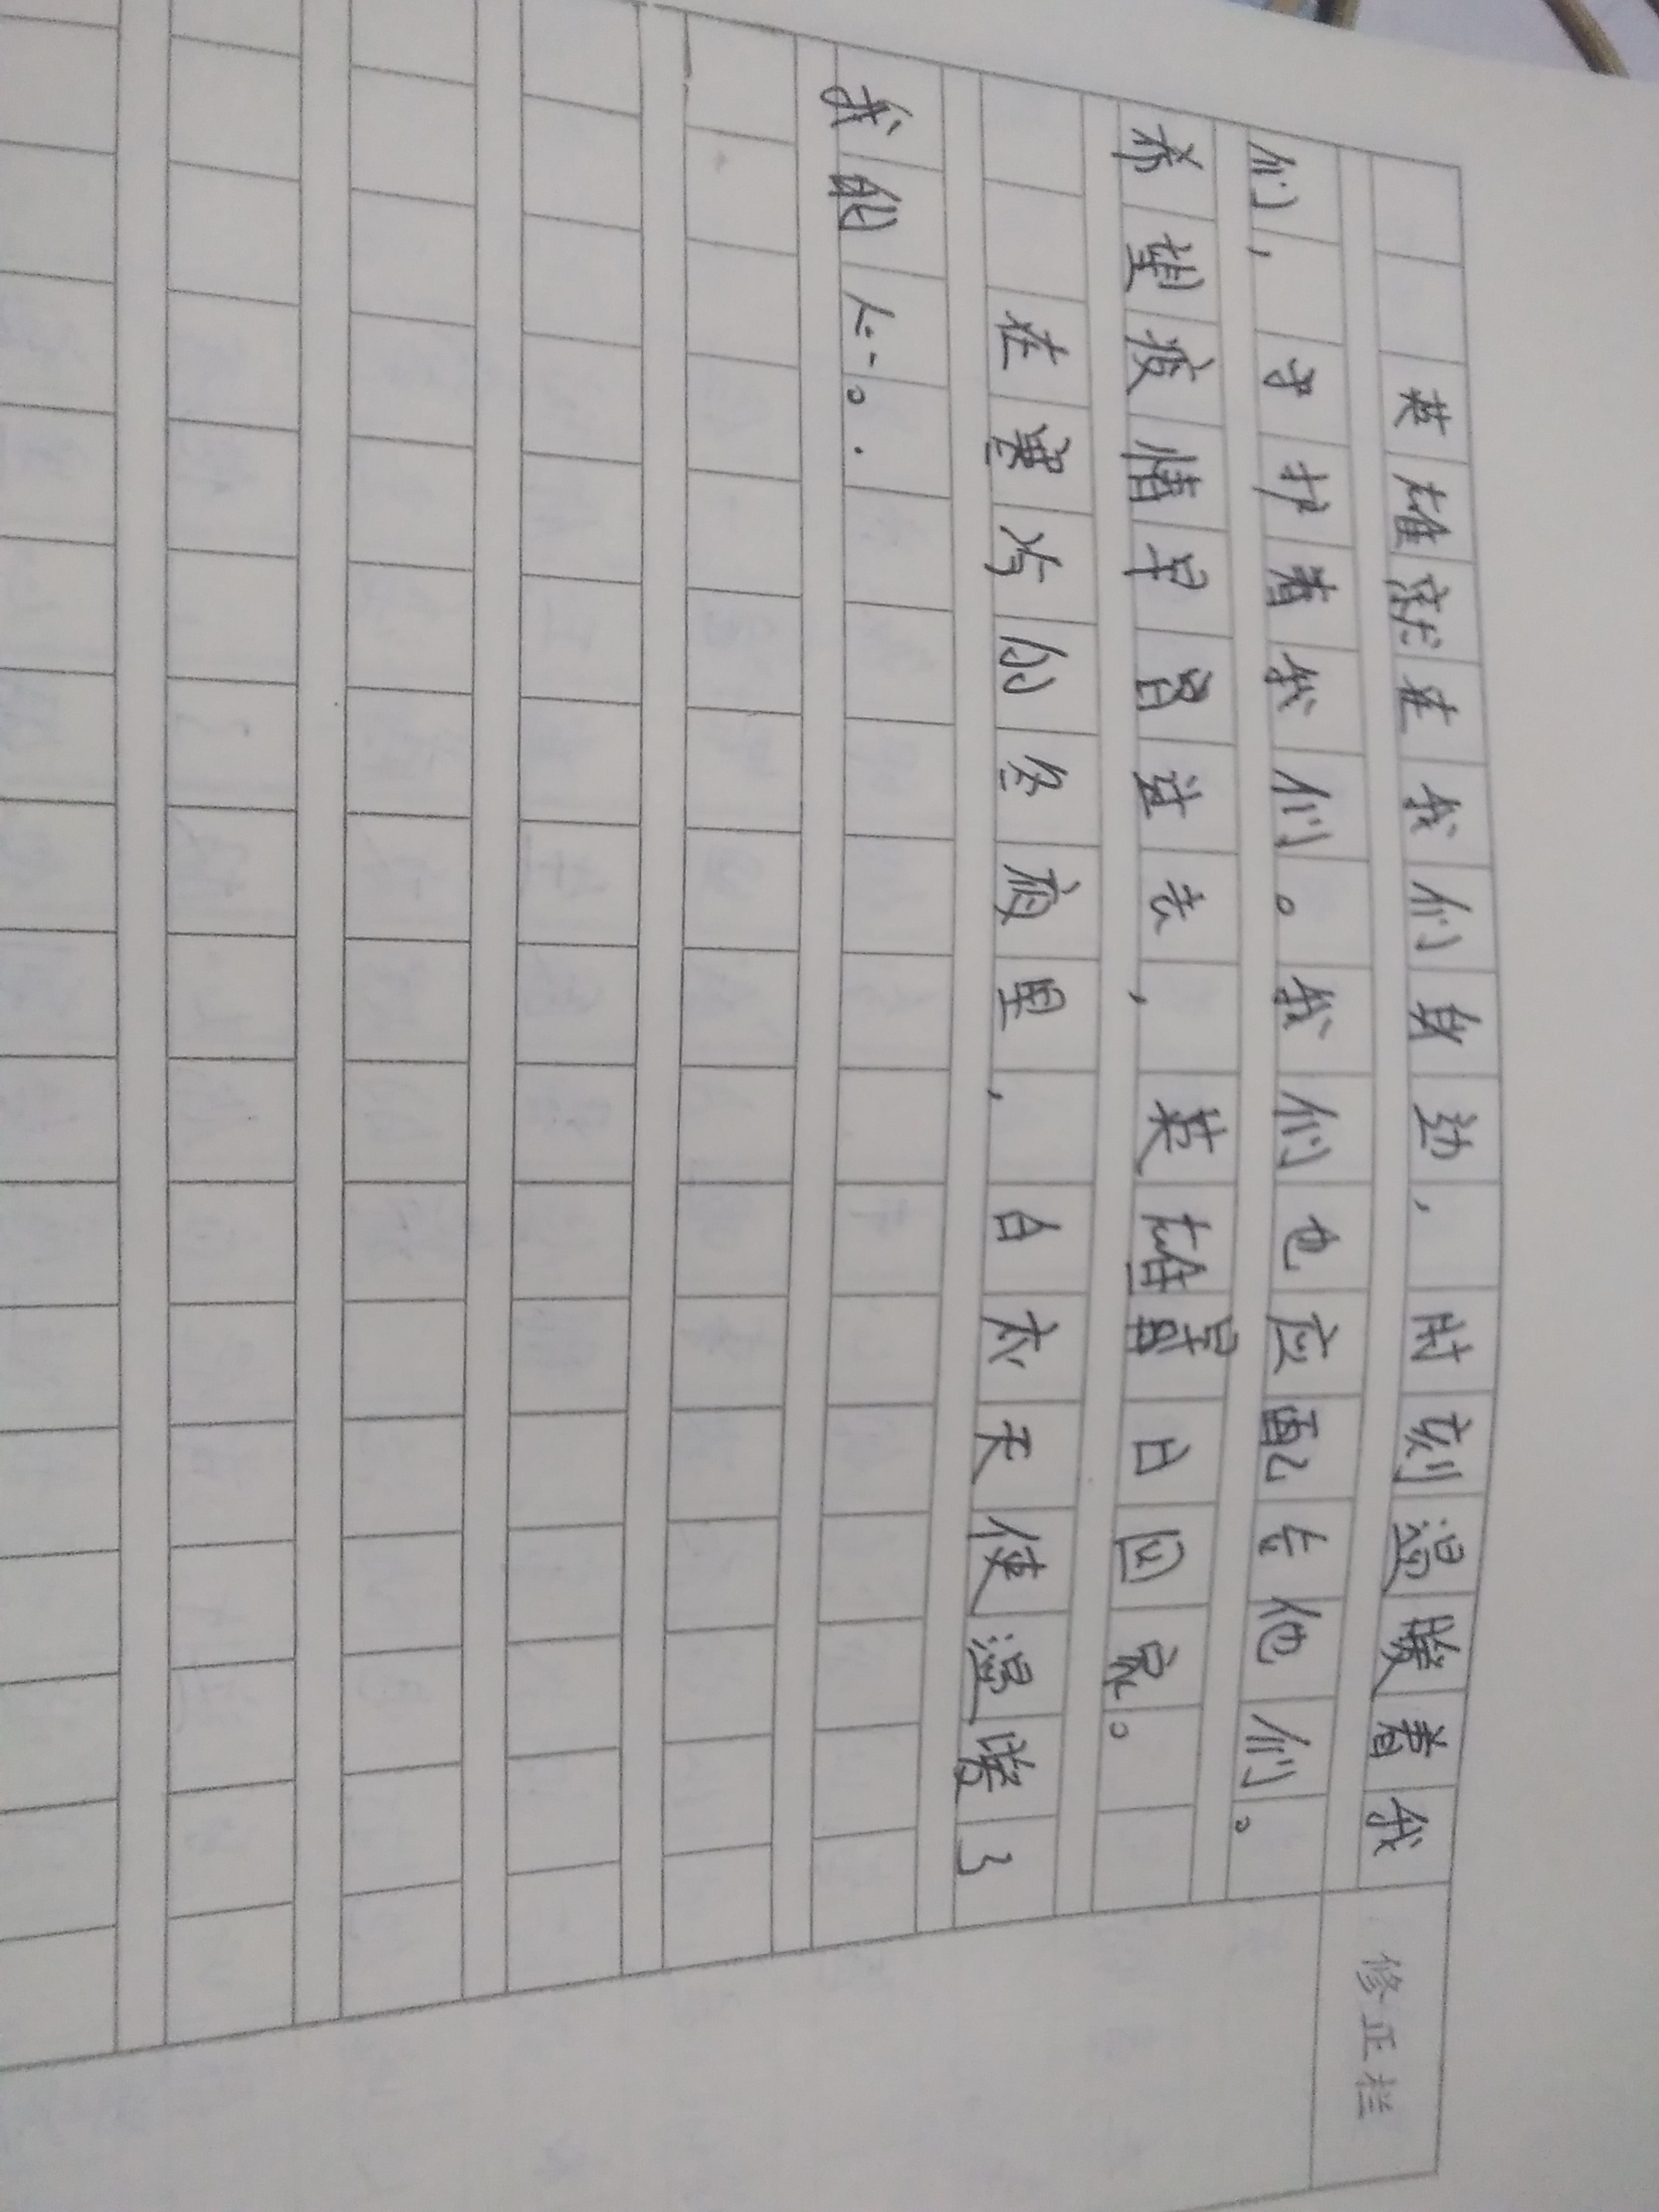 英雄就在我们身边,时刻温暖着我
们,守护着我们。我们也应配合他们。
希望疫情早日过去,英雄早日回家。
在寒冷的冬夜里,白衣天使温暖了
我的心。
修正栏